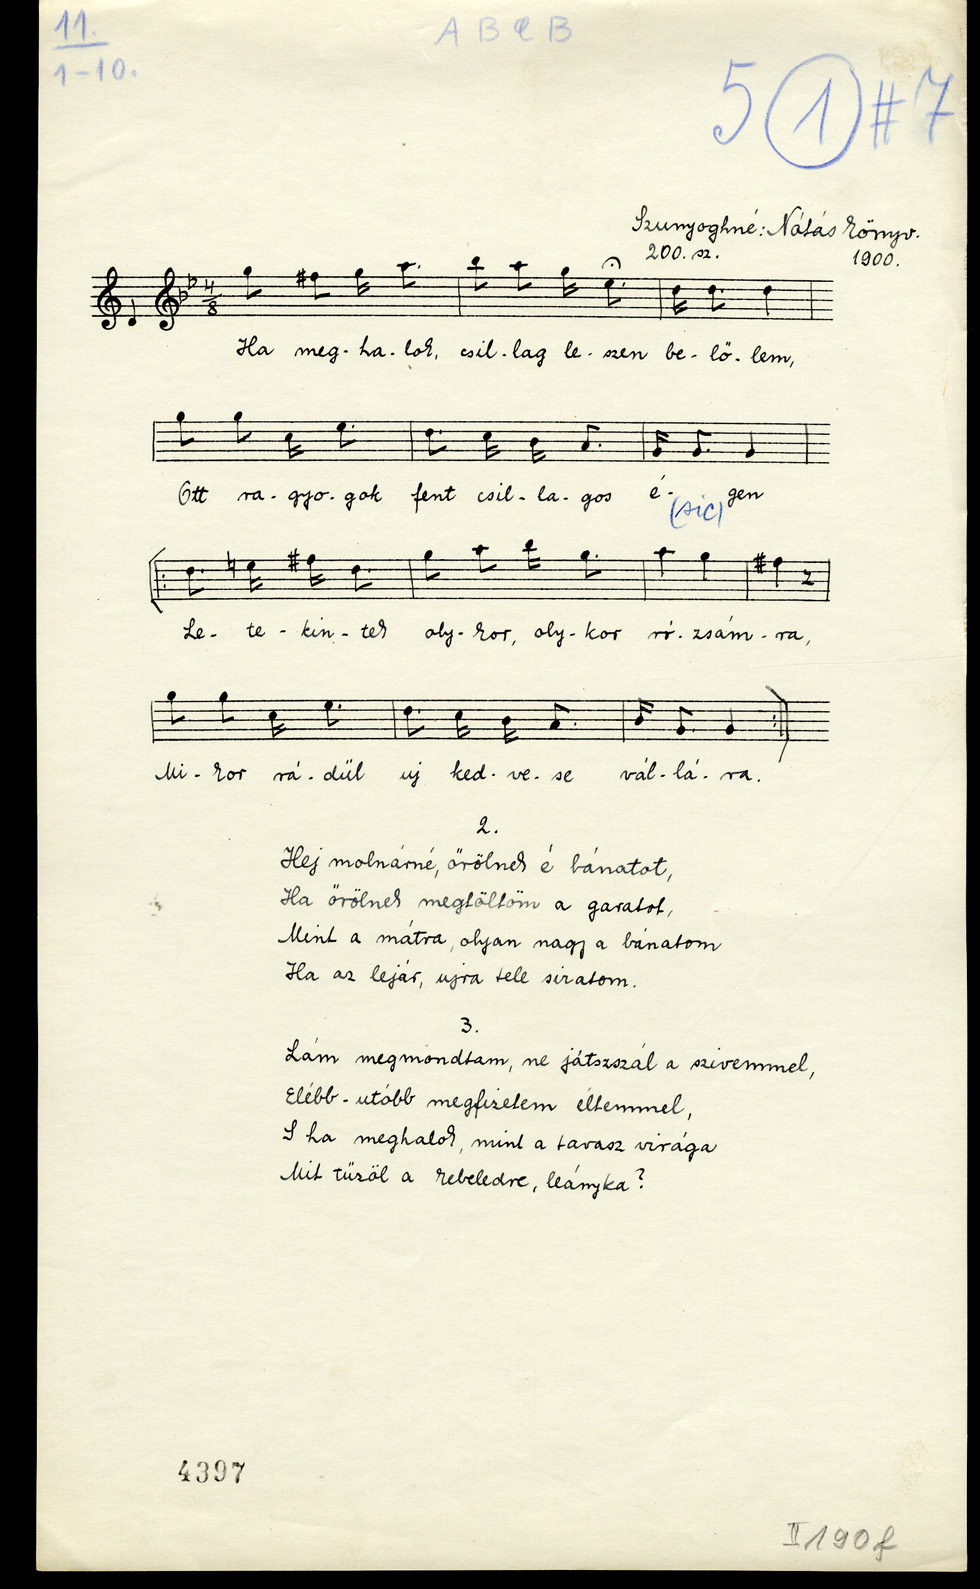 11.
1-10.
A B C B
5 1 # 7
Szunyoghné: Nótás könyv.
200. sz. 1900.
D
4/8
Ha meg-ha-lok, csil-lag le-szen be-lő-lem,
Ott ra-gyo-gok fent csil-la-gos é-gen
(sic)
Le-te-kin-tek oly-kor, oly-kor ró-zsám-ra,
Mi-kor rá-dül uj ked-ve-se vál-lá-ra.
2.
Hej molnárné, őrölnek é bánatot,
Ha őrölnek megtöltöm a garatot,
Mint a mátra, olyan nagy a bánatom
Ha az lejár, ujra tele siratom.
3.
Lám megmondtam, ne játszszál a szivemmel,
Elébb-utóbb megfizetem éltemmel,
S ha meghalok, mint a tavasz virága
Mit tüzöl a kebeledre, leányka?
4397
II 190 f